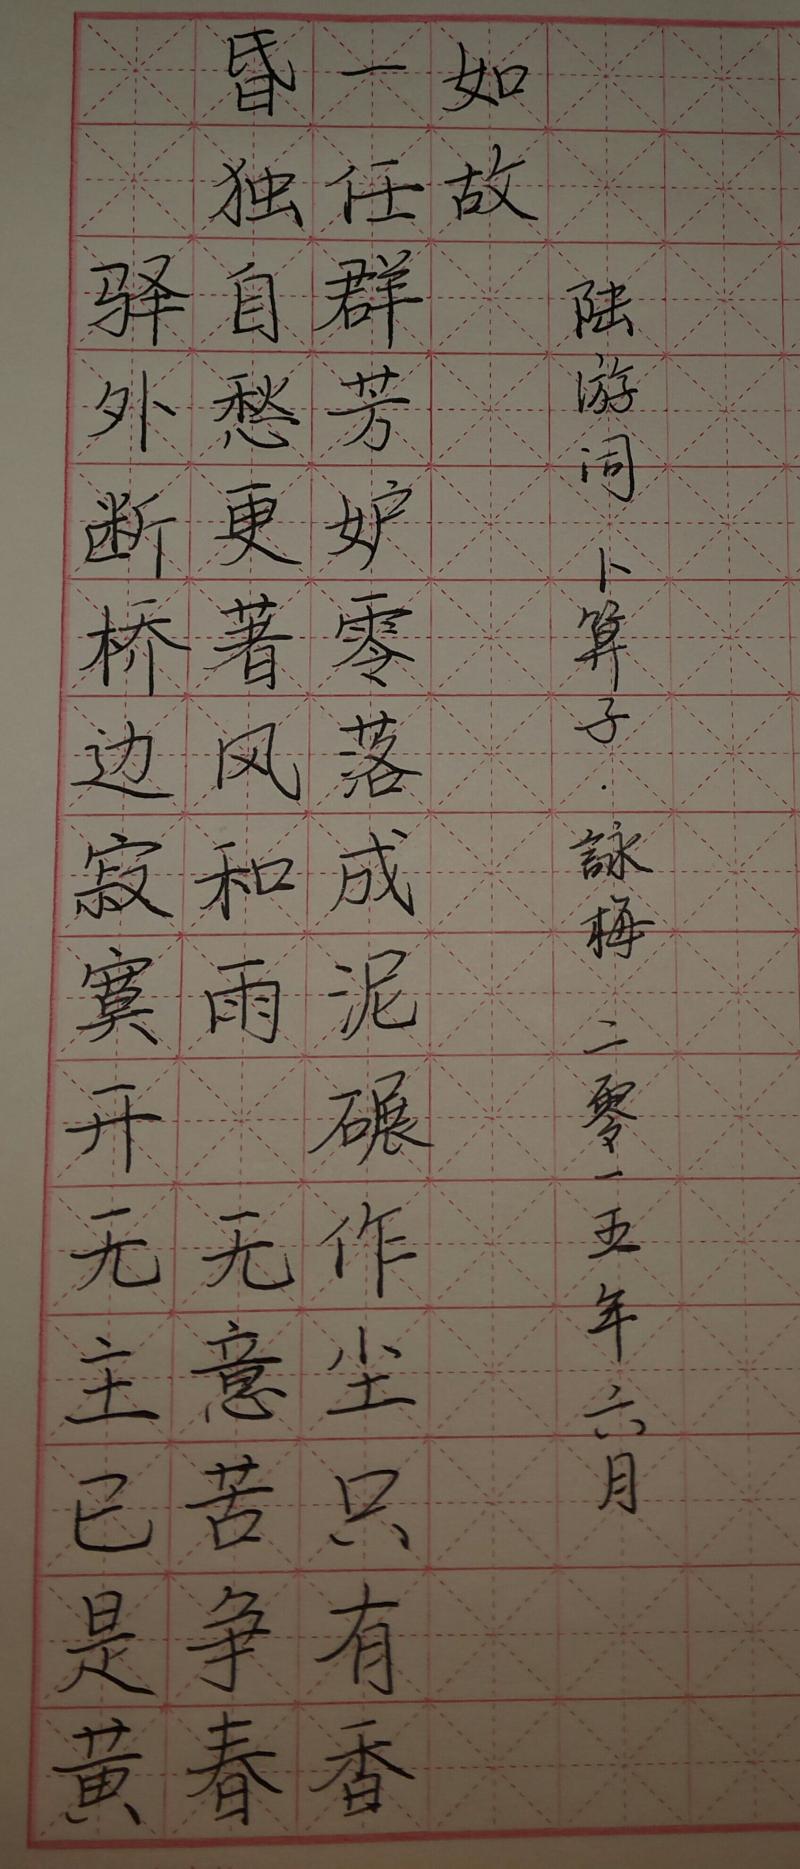 驿外断桥边寂寞开无主已是黄
昏独自愁更著风和雨 无意苦争春
一任群芳妒零落成泥碾作尘只有香
如故
陆游词 卜算子·詠梅 二零一五年六月